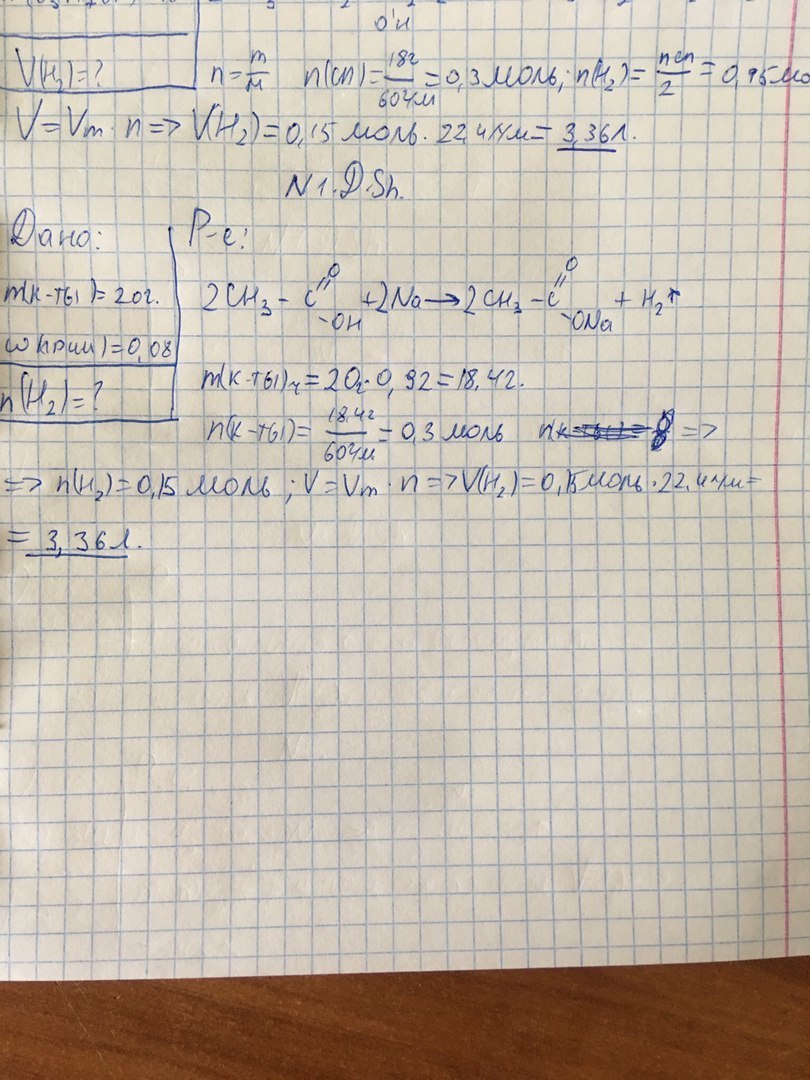 O'H
V(H₂)=? n=m/M n(сп)=18г/60г/м=0,3моль; n(H₂)=nсп/2=0,15мо
V=Vm·n=>V(H₂)=0,15моль·22,4л/м=3,36л.
N1.D.Sh.
Дано: Р-е:
m(к-ты)=20г. 2CH₃-C(=O)-OH+2Na→2CH₃-C(=O)-ONa+H₂↑
ω(прим)=0,08
n(H₂)=? m(к-ты)ч=20г·0,92=18,4г.
n(к-ты)=18,4г/60г/м=0,3моль =>
=>n(H₂)=0,15моль; V=Vm·n=>V(H₂)=0,15моль·22,4л/м=
=3,36л.